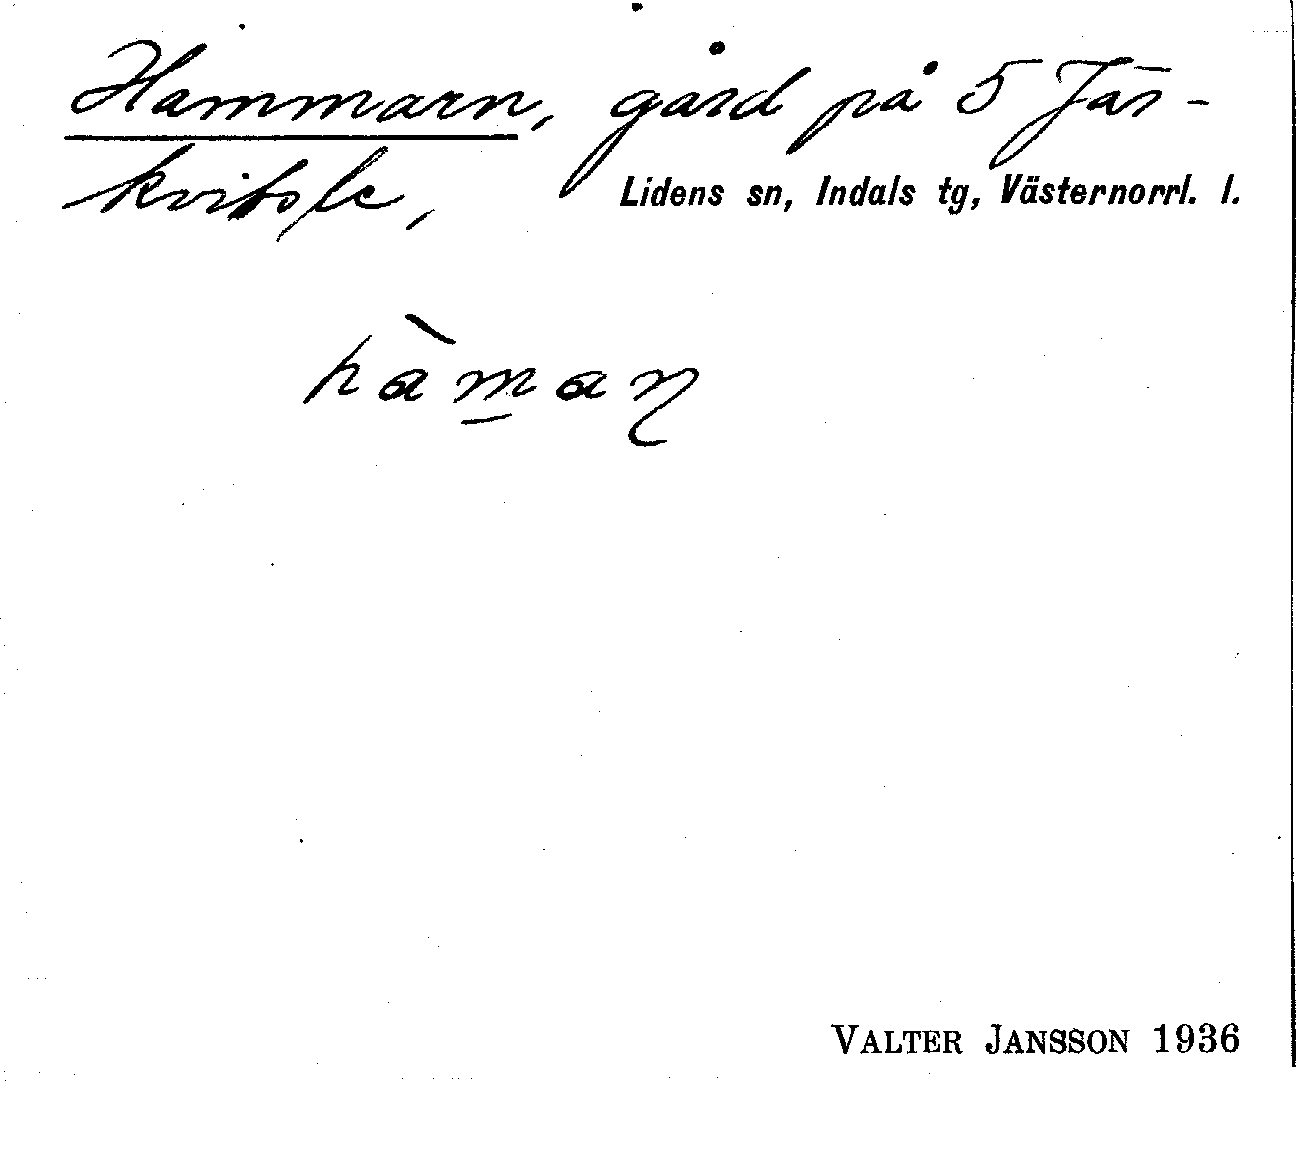 Hammarn, gård på 5 Jär-
kvitsle,
Lidens sn, Indals tg, Västernorrl. l.
hàmaɳ
VALTER JANSSON 1936